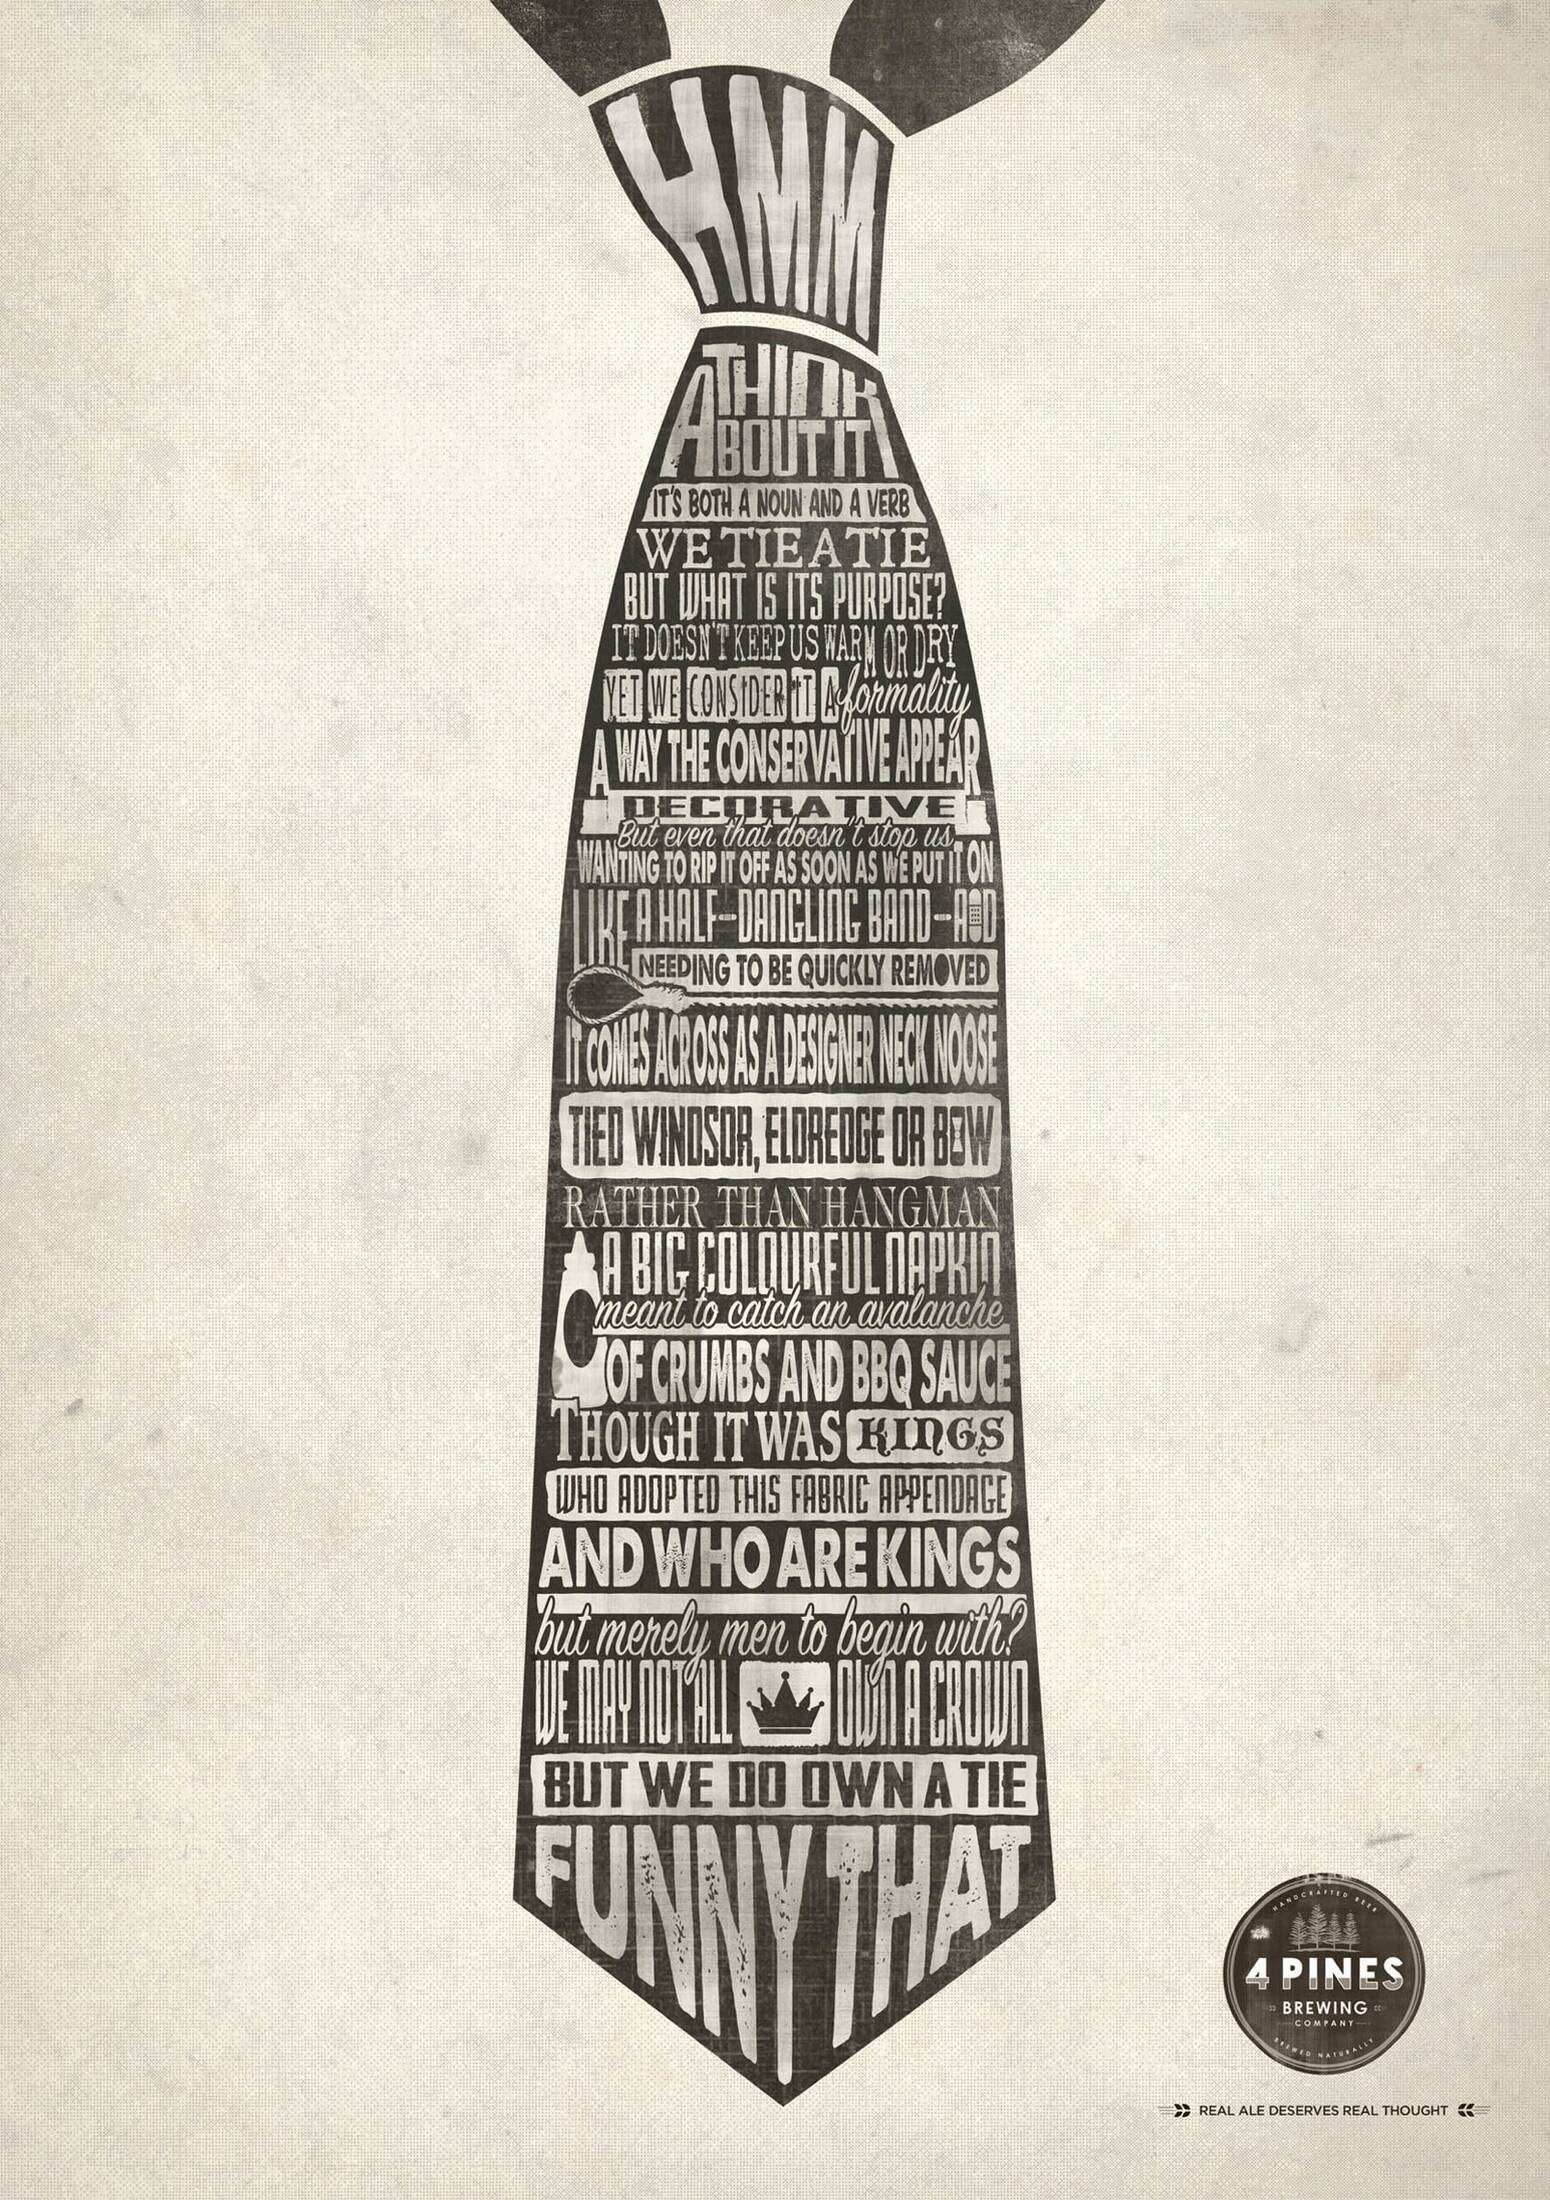 HMM
THINK
ABOUT IT!
IT'S BOTH A NOUN AND A VERB
WE TIE A TIE
BUT WHAT IS ITS PURPOSE?
IT DOESN'T KEEP US WARM OR DRY
YET WE CONSIDER IT A formality
A WAY THE CONSERVATIVE APPEAR
DECORATIVE
But even that doesn't stop us
WANTING TO RIP IT OFF AS SOON AS WE PUT IT ON
LIKE A HALF-DANGLING BAND-AID
NEEDING TO BE QUICKLY REMOVED
IT COMES ACROSS AS A DESIGNER NECK NOOSE
TIED WINDSOR, ELDREDGE OR BOW
RATHER THAN HANGMAN
A BIG COLOURFUL NAPKIN
meant to catch an avalanche
OF CRUMBS AND BBQ SAUCE
THOUGH IT WAS KINGS
WHO ADOPTED THIS FABRIC APPENDAGE
AND WHO ARE KINGS
but merely men to begin with?
WE MAY NOT ALL OWN A CROWN
BUT WE DO OWN A TIE
FUNNY THAT
HANDCRAFTED BEER
4 PINES
BREWING
COMPANY
BREWED NATURALLY
REAL ALE DESERVES REAL THOUGHT